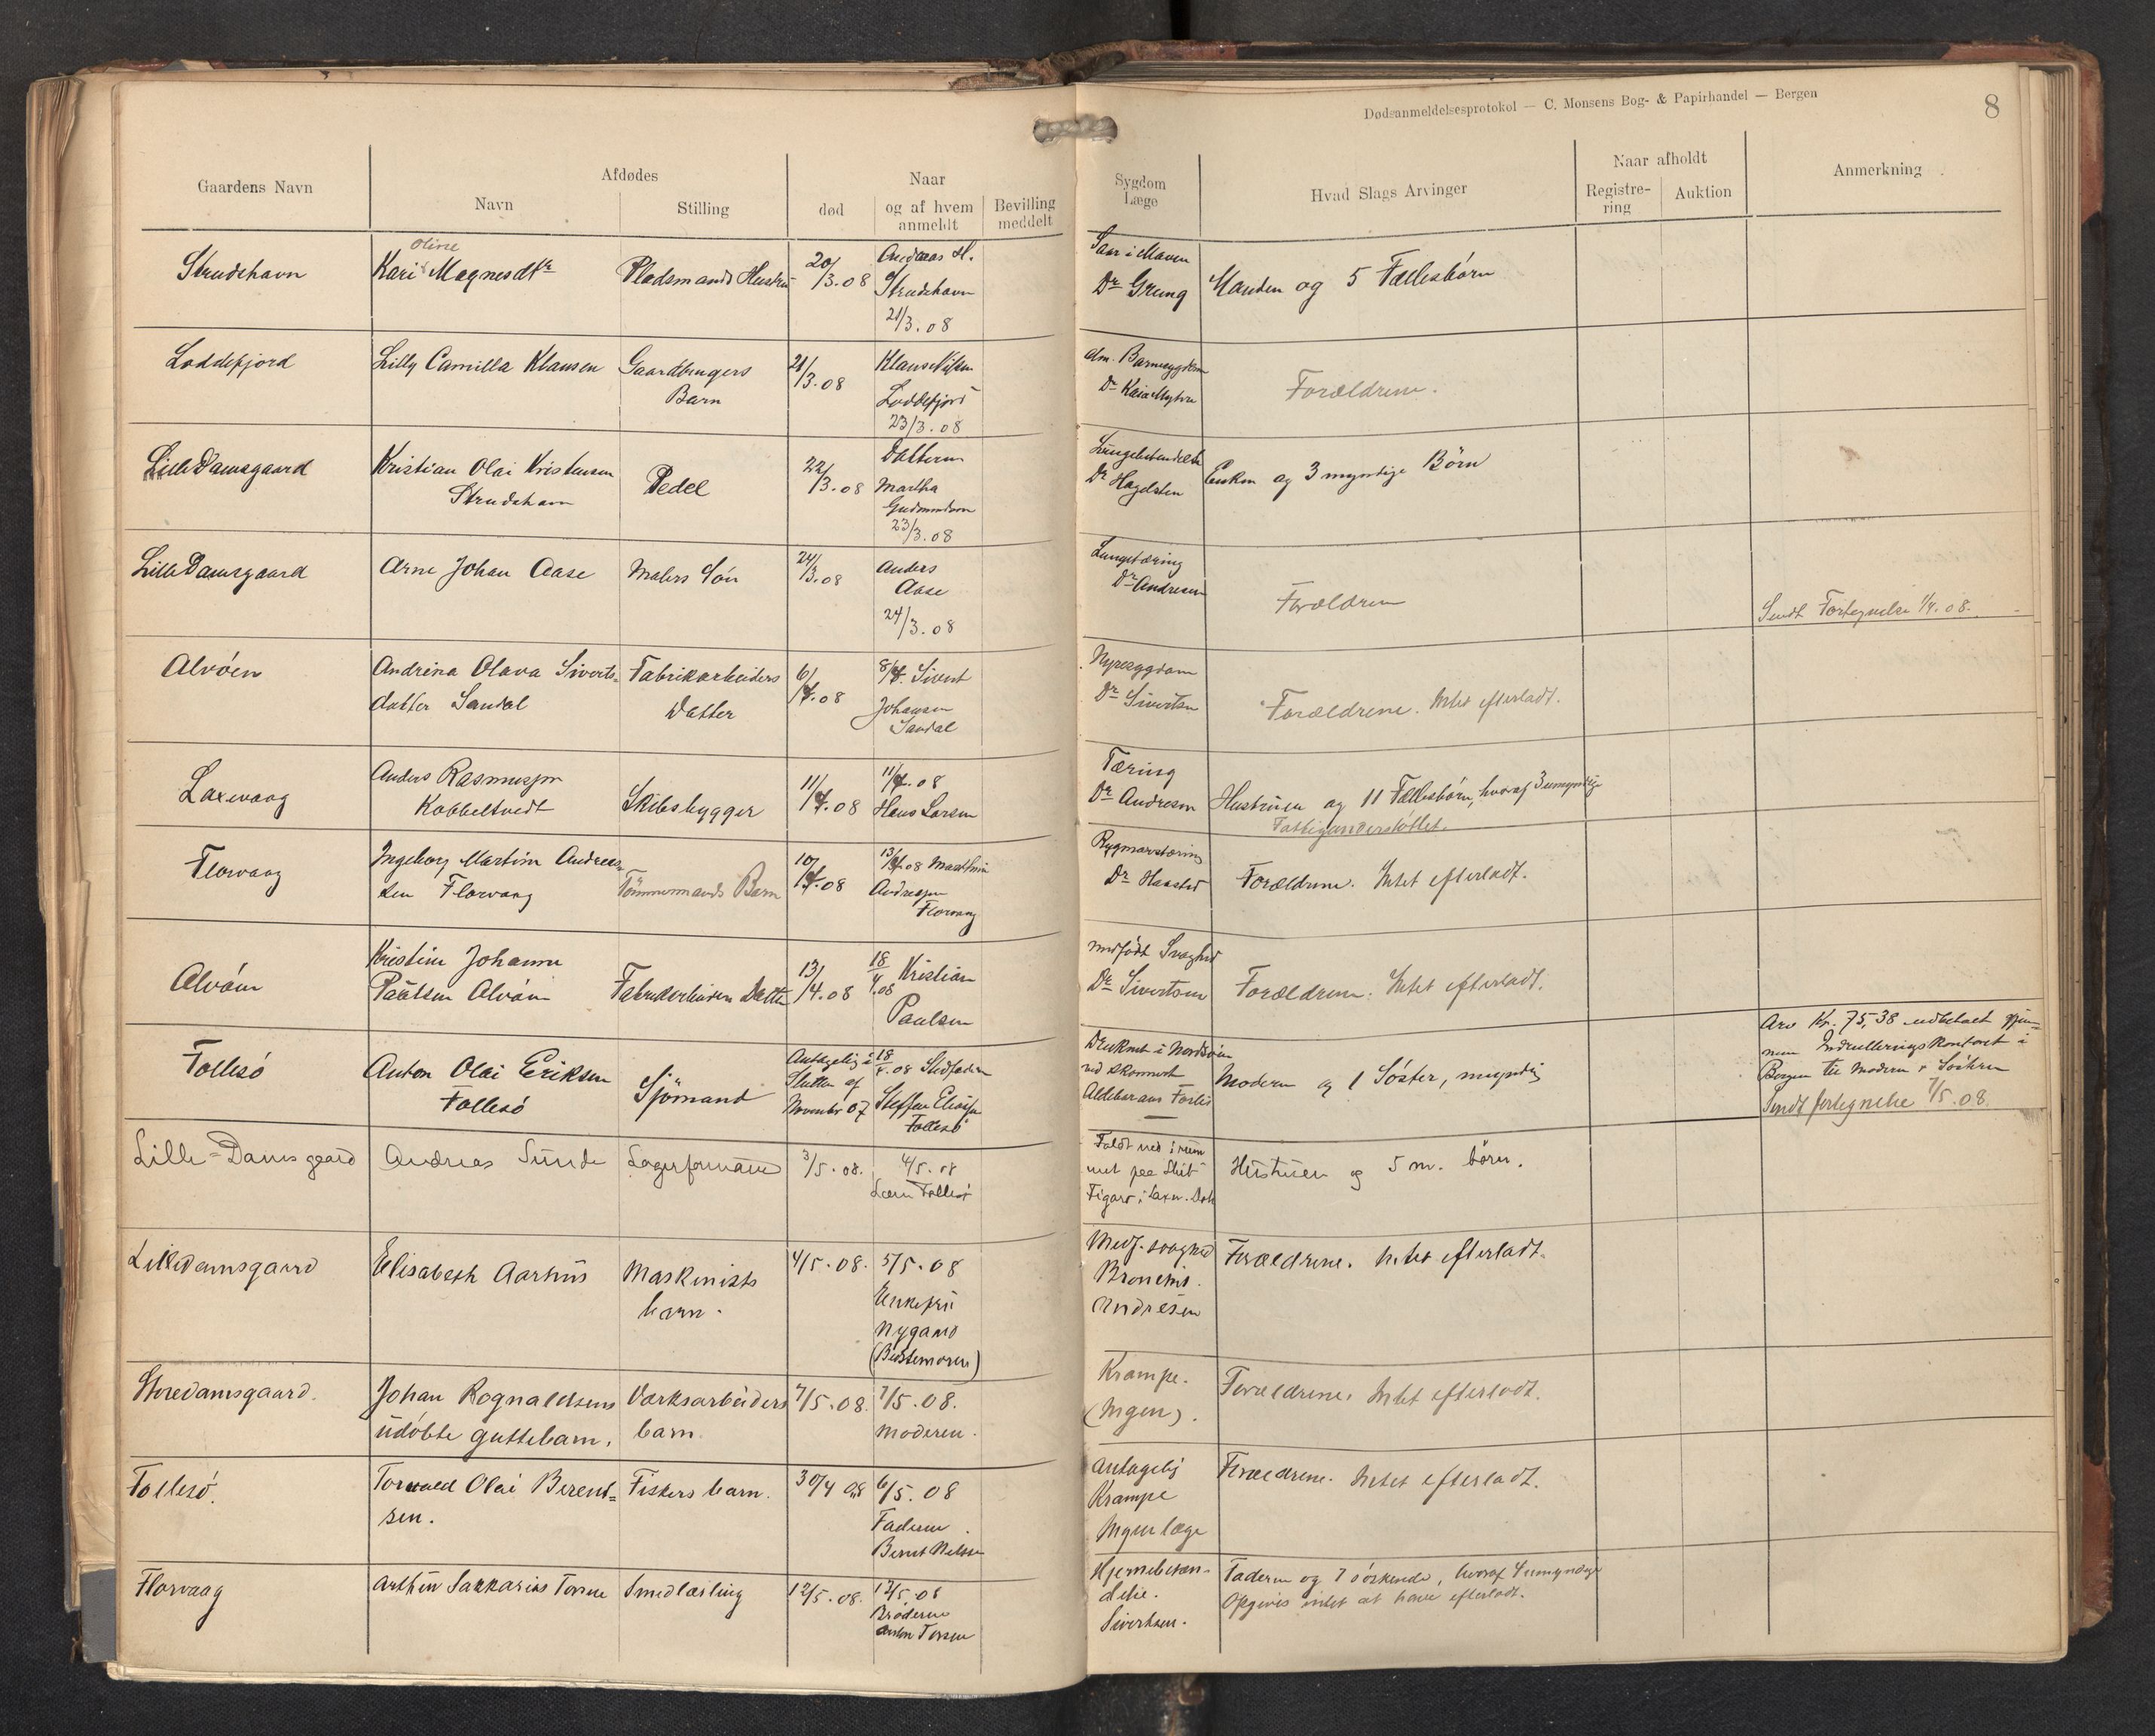 Dødsanmeldelsesprotokol — C. Monsens Bog- & Papirhandel — Bergen
8
Gaardens Navn
Afdødes
Navn
Stilling
Naar
død
og af hvem
anmeldt
Bevilling
meddelt
Sygdom
Læge
Hvad Slags Arvinger
Naar afholdt
Registre-
ring
Auktion
Anmerkning
Strudshavn
Oline
Kari Magnesdtr
Pladsmands Hustru
20/3.08
Andreas H.
Strudshavn
21/3.08
Saar i Maven
Dr Grung
Manden og 5 Fællesbörn
Loddefjord
Lilly Camilla Klausen
Gaardbrugers
Barn
21/3.08
Klaus Nilsen
Loddefjord
23/3.08
alm. Barnesygdom
Dr Kaia Myhre
Forældrene.
Lille Damsgaard
Kristian Olai Kristensen
Strudshavn
Pedel
22/3.08
Datteren
Martha
23/3.08
Lungebetændelse
Dr Hagelsten
Enken og 3 myndige Börn
Lille Damsgaard
Arne Johan Aase
Malers Sön
24/3.08
Anders
Aase
24/3.08
Lungetæring
Dr Andresen
Forældrene
Sendt Fortegnelse 1/4.08.
Alvöen
Andrina Olava Siverts-
datter Sandal
Fabrikarbeiders
Datter
6/4.08
8/4. Sivert
Johansen
Sandal
Nyresygdom
Dr Sivertsen
Forældrene. Intet efterladt.
Laxevaag
Anders Rasmussen
Kobbeltvedt
Skibsbygger
11/4.08
11/4.08
Hans Larsen
Tæring
Dr Andresen
Hustruen og 11 Fællesbörn, hvoraf 3 umyndige
Fattigunderstöttet.
Florvaag
Ingeborg Martine Andreas-
sen Florvaag
Tömmermands Barn
10/4.08
13/4.08 Marthin
Andreassen
Florvaag
Rygmarvstæring
Dr Haaster
Forældrene. Intet efterladt.
Alvöen
Kristine Johanne
Paulsen Alvöen
Fabrikarbeiders Datter
13/4.08
18/4.08 Kristian
Paulsen
medfödt Svaghed
Dr Sivertsen
Forældrene. Intet efterladt.
Follesö
Anton Olai Eriksen
Follesö
Sjömand
Antagelig i
Slutten af
November 07
18/4.08 Stedfaderen
Steffen Eliassen
Follesö
Druknet i Nordsöen
ved Skonnert
Aldebarans Forlis
Moderen og 1 Söster, myndig
Arv Kr. 75,38 udbetalt gjen-
nem Indrulleringskontoret i
Bergen til Moderen & Sösteren
Sendt fortegnelse 7/5.08.
Lille-Damsgaard
Andreas Sunde
Lagerformand
3/5.08.
4/5.08
Follesö
Faldt ned i rum-
met paa Skib
Figaro i Laxev. Dok
Hustruen og 5 m. börn.
Lilledamsgaard
Elisabeth Aarhus
Maskinists
barn.
4/5.08.
5/5.08
Enkefru
Nygaard
(Bedstemoren)
Medf. svaghed
Bronchit.
Andresen
Forældrene. Intet efterladt.
Storedamsgaard.
Johan Rognaldsens
udöbte guttebarn.
Værksarbeiders
barn.
7/5.08.
7/5.08.
Moderen.
Krampe.
(Ingen).
Forældrene. Intet efterladt.
Follesö.
Torvald Olai Berent-
sen.
Fiskers barn.
30/4 08
6/5.08
Faderen
Bernt Nilsen
Antagelig
Krampe
Ingen læge
Forældrene. Intet efterladt.
Florvaag
Arthur Sakkarias Torsen
Smedlærling
12/5.08.
12/5.08
Broderen
Anton Torsen
Hjernebetæn-
delse.
Sivertsen.
Faderen og 7 söskende, hvoraf 4 umyndige
Opgives intet at have efterladt.